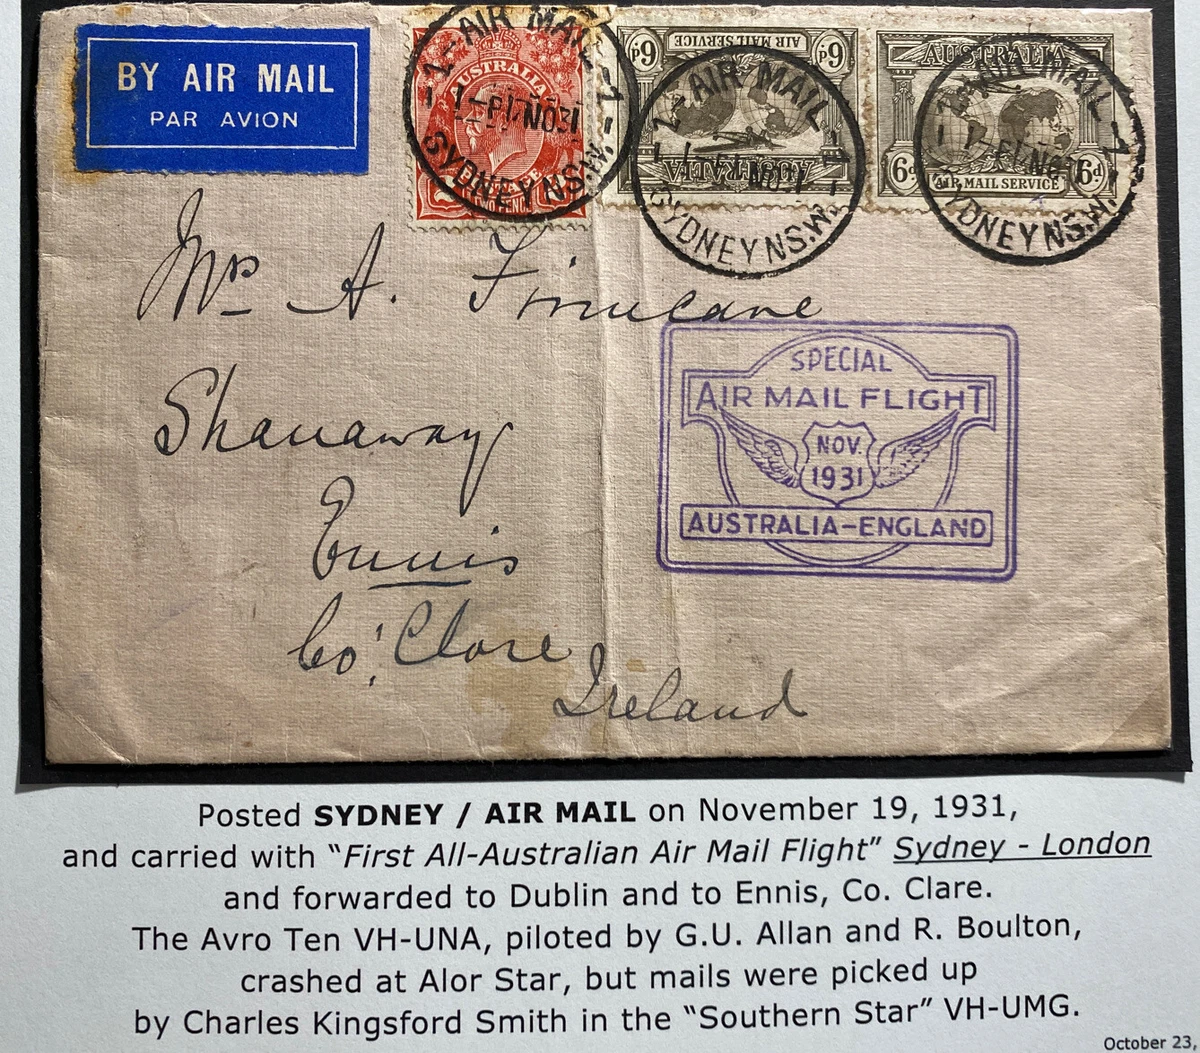 BY AIR MAIL
PAR AVION
AUSTRALIA
TWO PENCE
AIR MAIL
1-P17NO31
SYDNEY N.S.W.
AIR MAIL SERVICE
6d 6d
AUSTRALIA
AIR MAIL
NO31
SYDNEY N.S.W.
AUSTRALIA
6d 6d
AIR MAIL SERVICE
AIR MAIL
SYDNEY N.S.W.
Mrs A. Finucane
Shanaway
Ennis
Co! Clare
Ireland
SPECIAL
AIR MAIL FLIGHT
NOV.
1931
AUSTRALIA-ENGLAND
Posted SYDNEY / AIR MAIL on November 19, 1931,
and carried with “First All-Australian Air Mail Flight” Sydney - London
and forwarded to Dublin and to Ennis, Co. Clare.
The Avro Ten VH-UNA, piloted by G.U. Allan and R. Boulton,
crashed at Alor Star, but mails were picked up
by Charles Kingsford Smith in the “Southern Star” VH-UMG.
October 23,